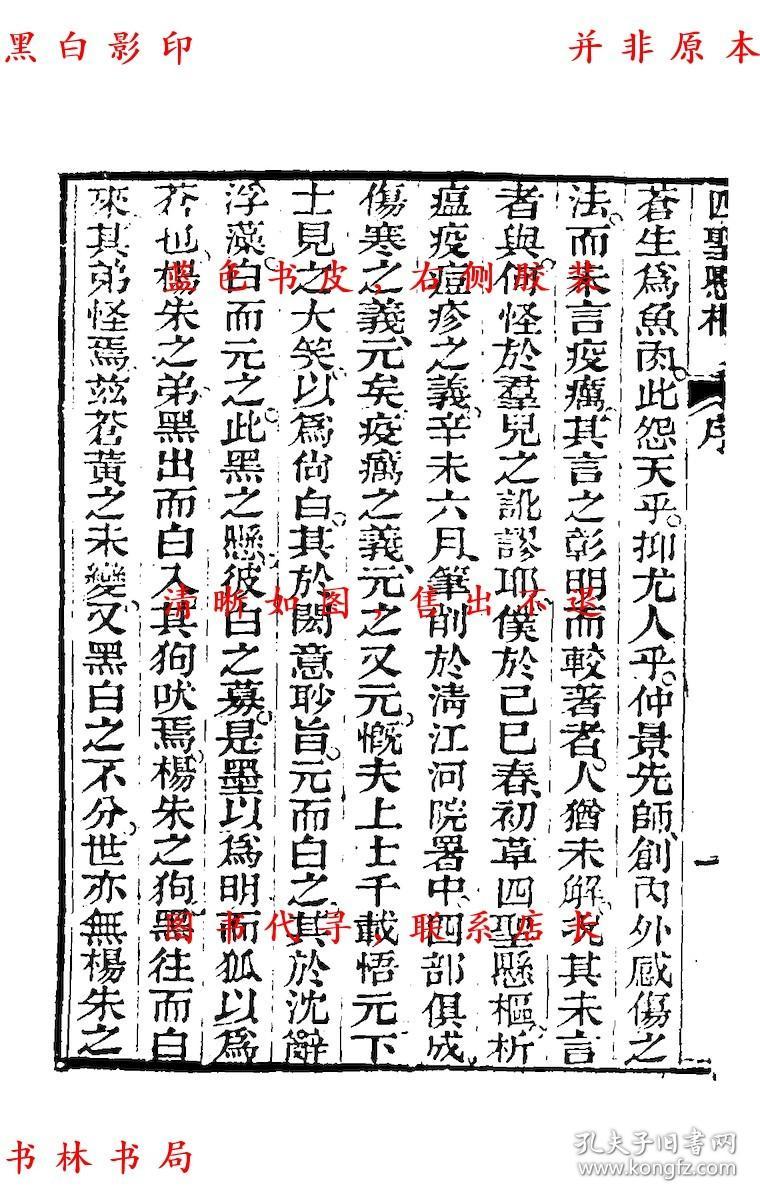 黑白影印
并非原本
四聖懸樞 序 一
蒼生為魚肉。此怨天乎。抑尤人乎。仲景先師、創內外感傷之
法。而未言疫癘。其言之彰明而較著者。人猶未解。况其未言
者與。何怪於羣兒之訛謬耶。僕於己巳春、初草四聖懸樞。析
瘟疫痘疹之義。辛未六月、筆削於清江河院署中。四部俱成。
傷寒之義、元矣。疫癘之義、元之又元。慨夫上士千載悟元。下
士見之大笑。以為尚白。其於閎意眇旨。元而白之。其於沈辭
浮藻。白而元之。此黑之懸、彼白之募。是墨以為明而狐以為
蒼也。楊朱之弟、黑出而白入。其狗吠焉。楊朱之狗。黑往而白
來。其弟怪焉。茲蒼黃之未變。又黑白之不分。世亦無楊朱之
蓝色书皮，右侧胶装
清晰如图，售出不退
图书代寻，联系店长
书林书局
孔夫子旧书网
www.kongfz.com